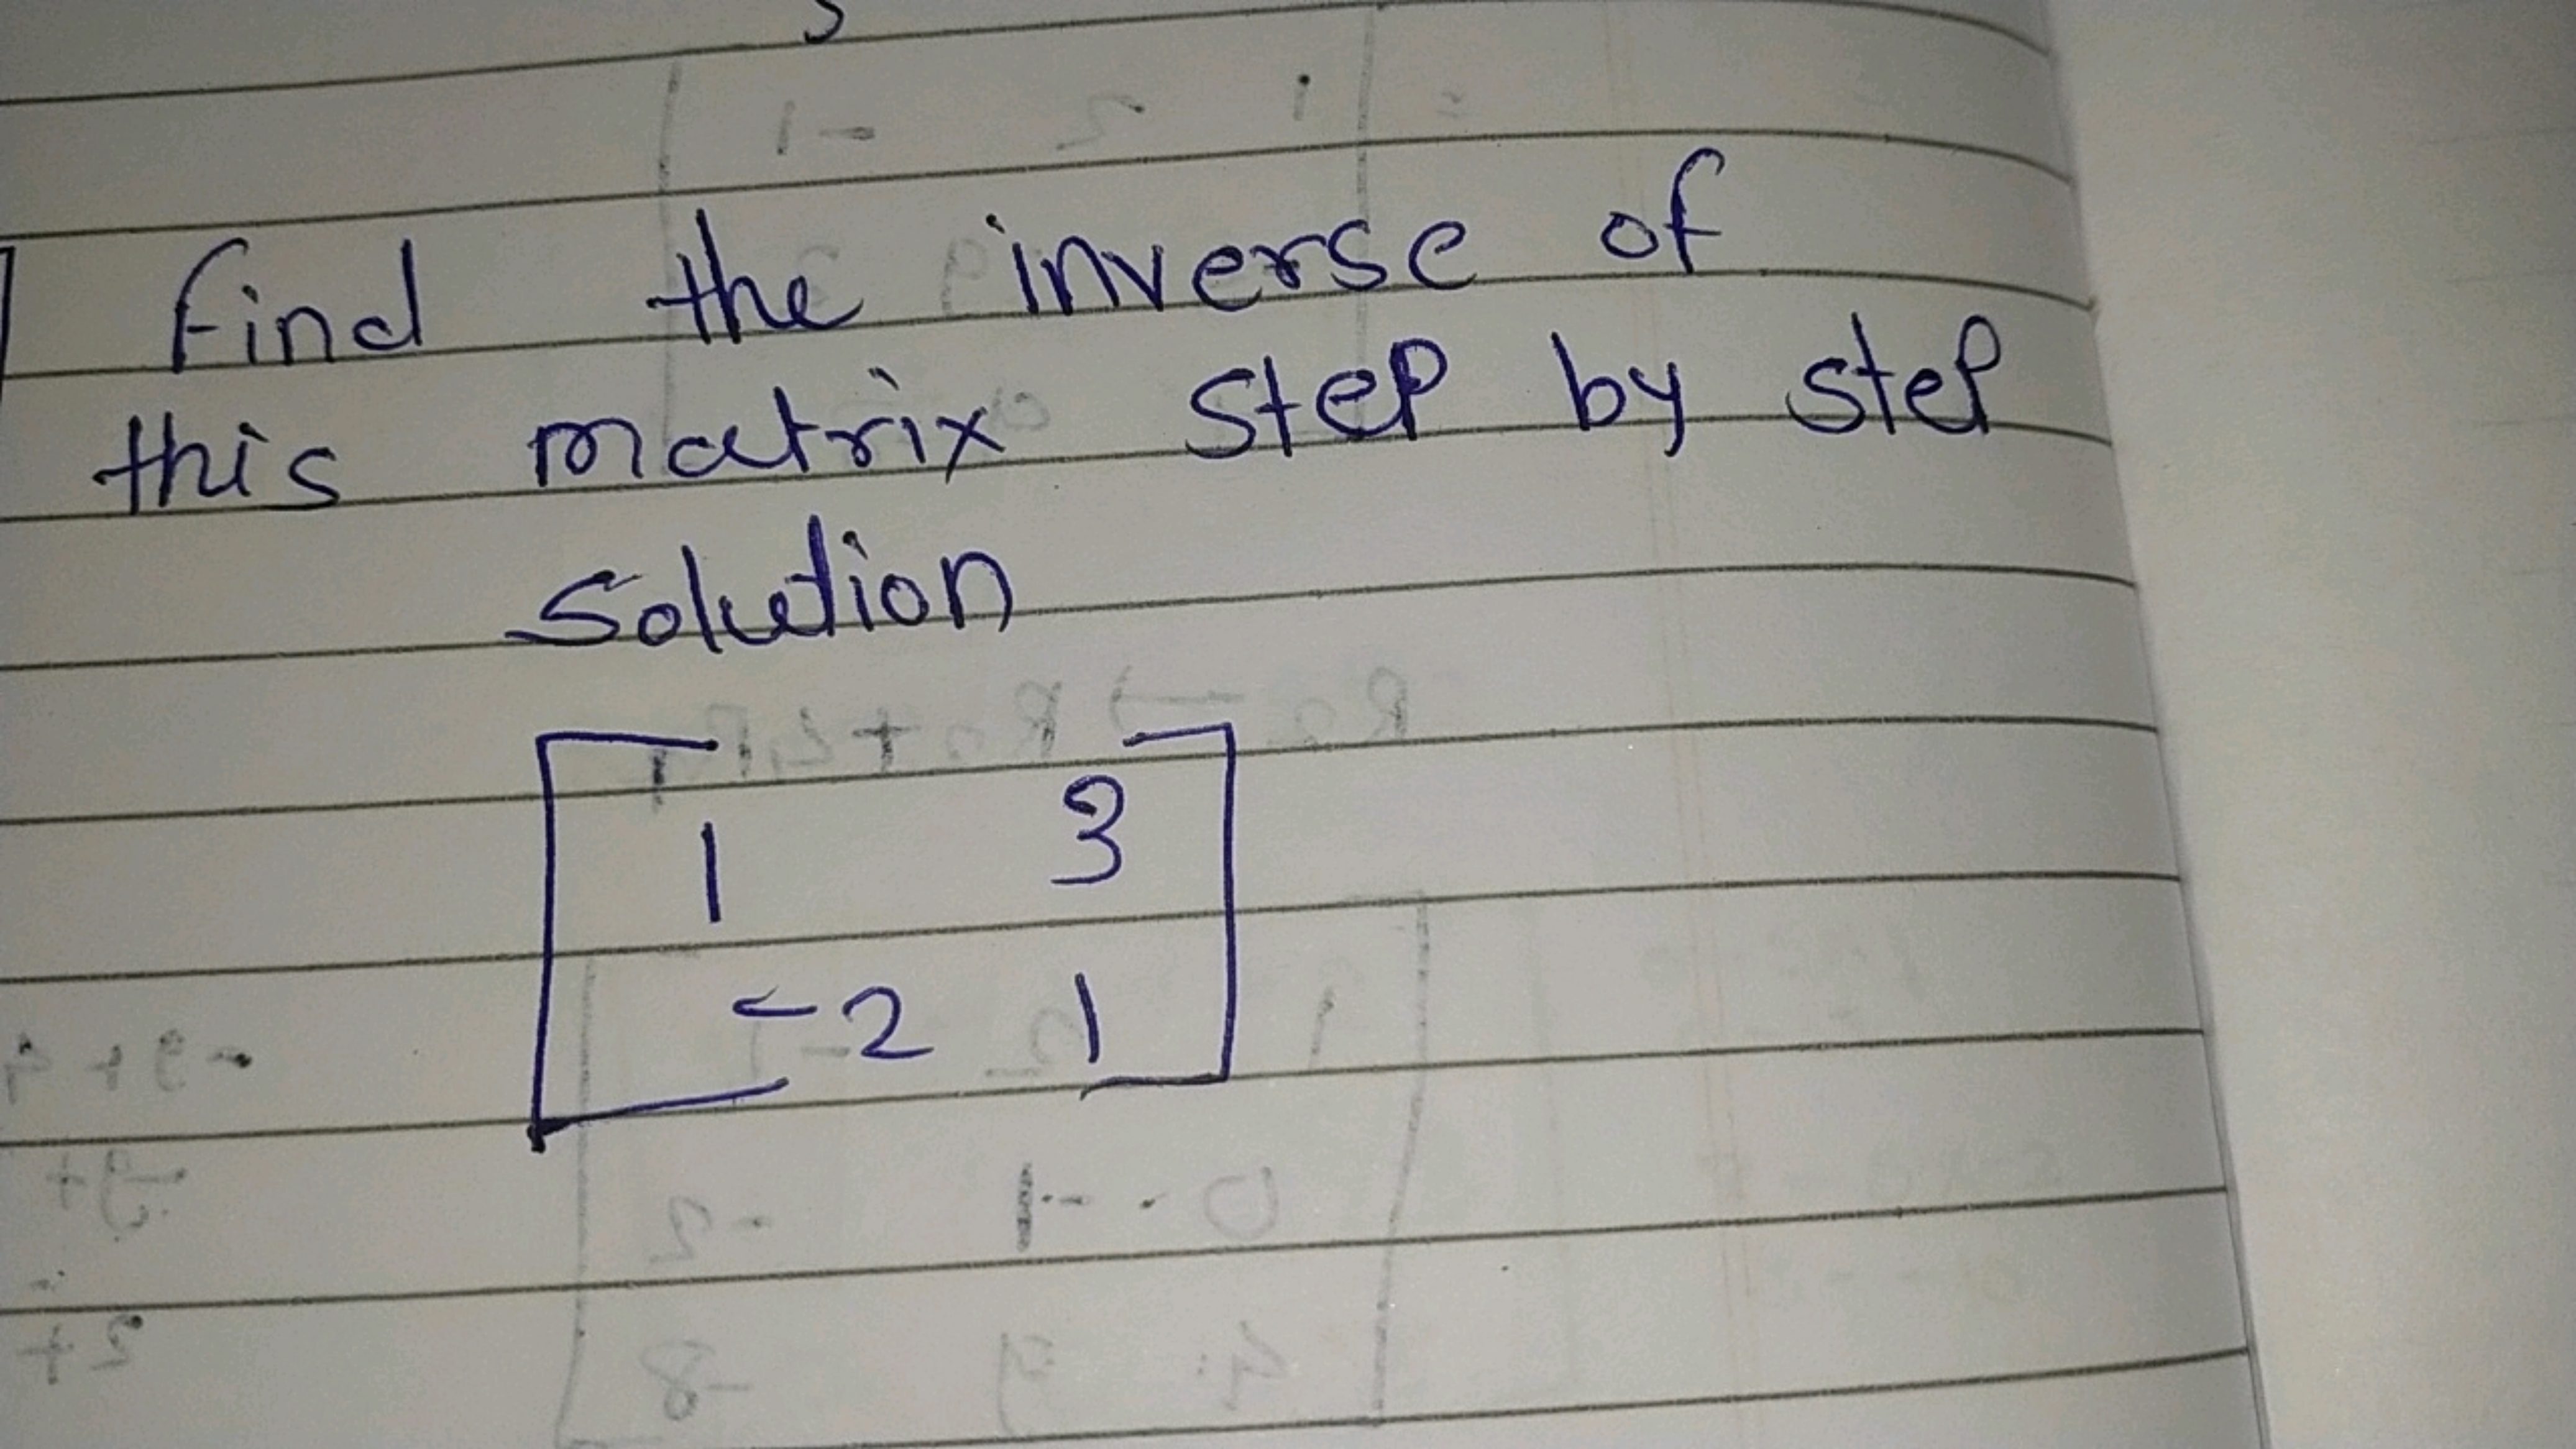 Find the inverse of
this matrix step by step
Solution
1 3
-2 1